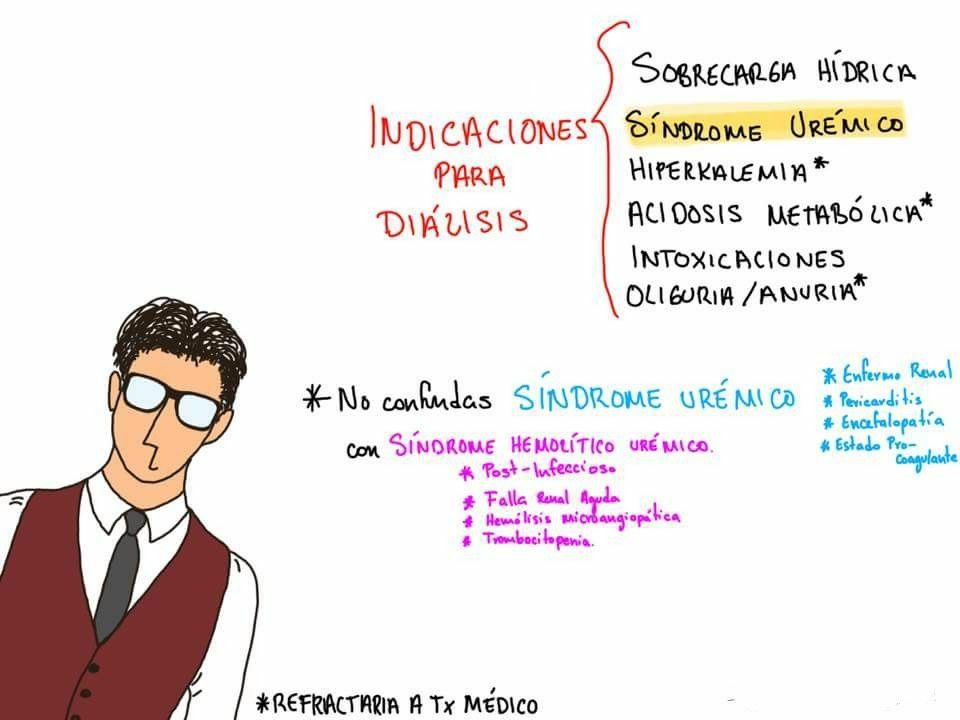 INDICACIONES
PARA
DIÁLISIS
SOBRECARGA HÍDRICA
SÍNDROME URÉMICO
HIPERKALEMIA*
ACIDOSIS METABÓLICA*
INTOXICACIONES
OLIGURIA/ANURIA*
* No confundas SÍNDROME URÉMICO
* Enfermo Renal
* Pericarditis
* Encefalopatía
* Estado Pro-
Coagulante
con SÍNDROME HEMOLÍTICO URÉMICO.
* Post-Infeccioso
* Falla Renal Aguda
* Hemólisis microangiopática
* Trombocitopenia.
*REFRACTARIA A Tx MÉDICO